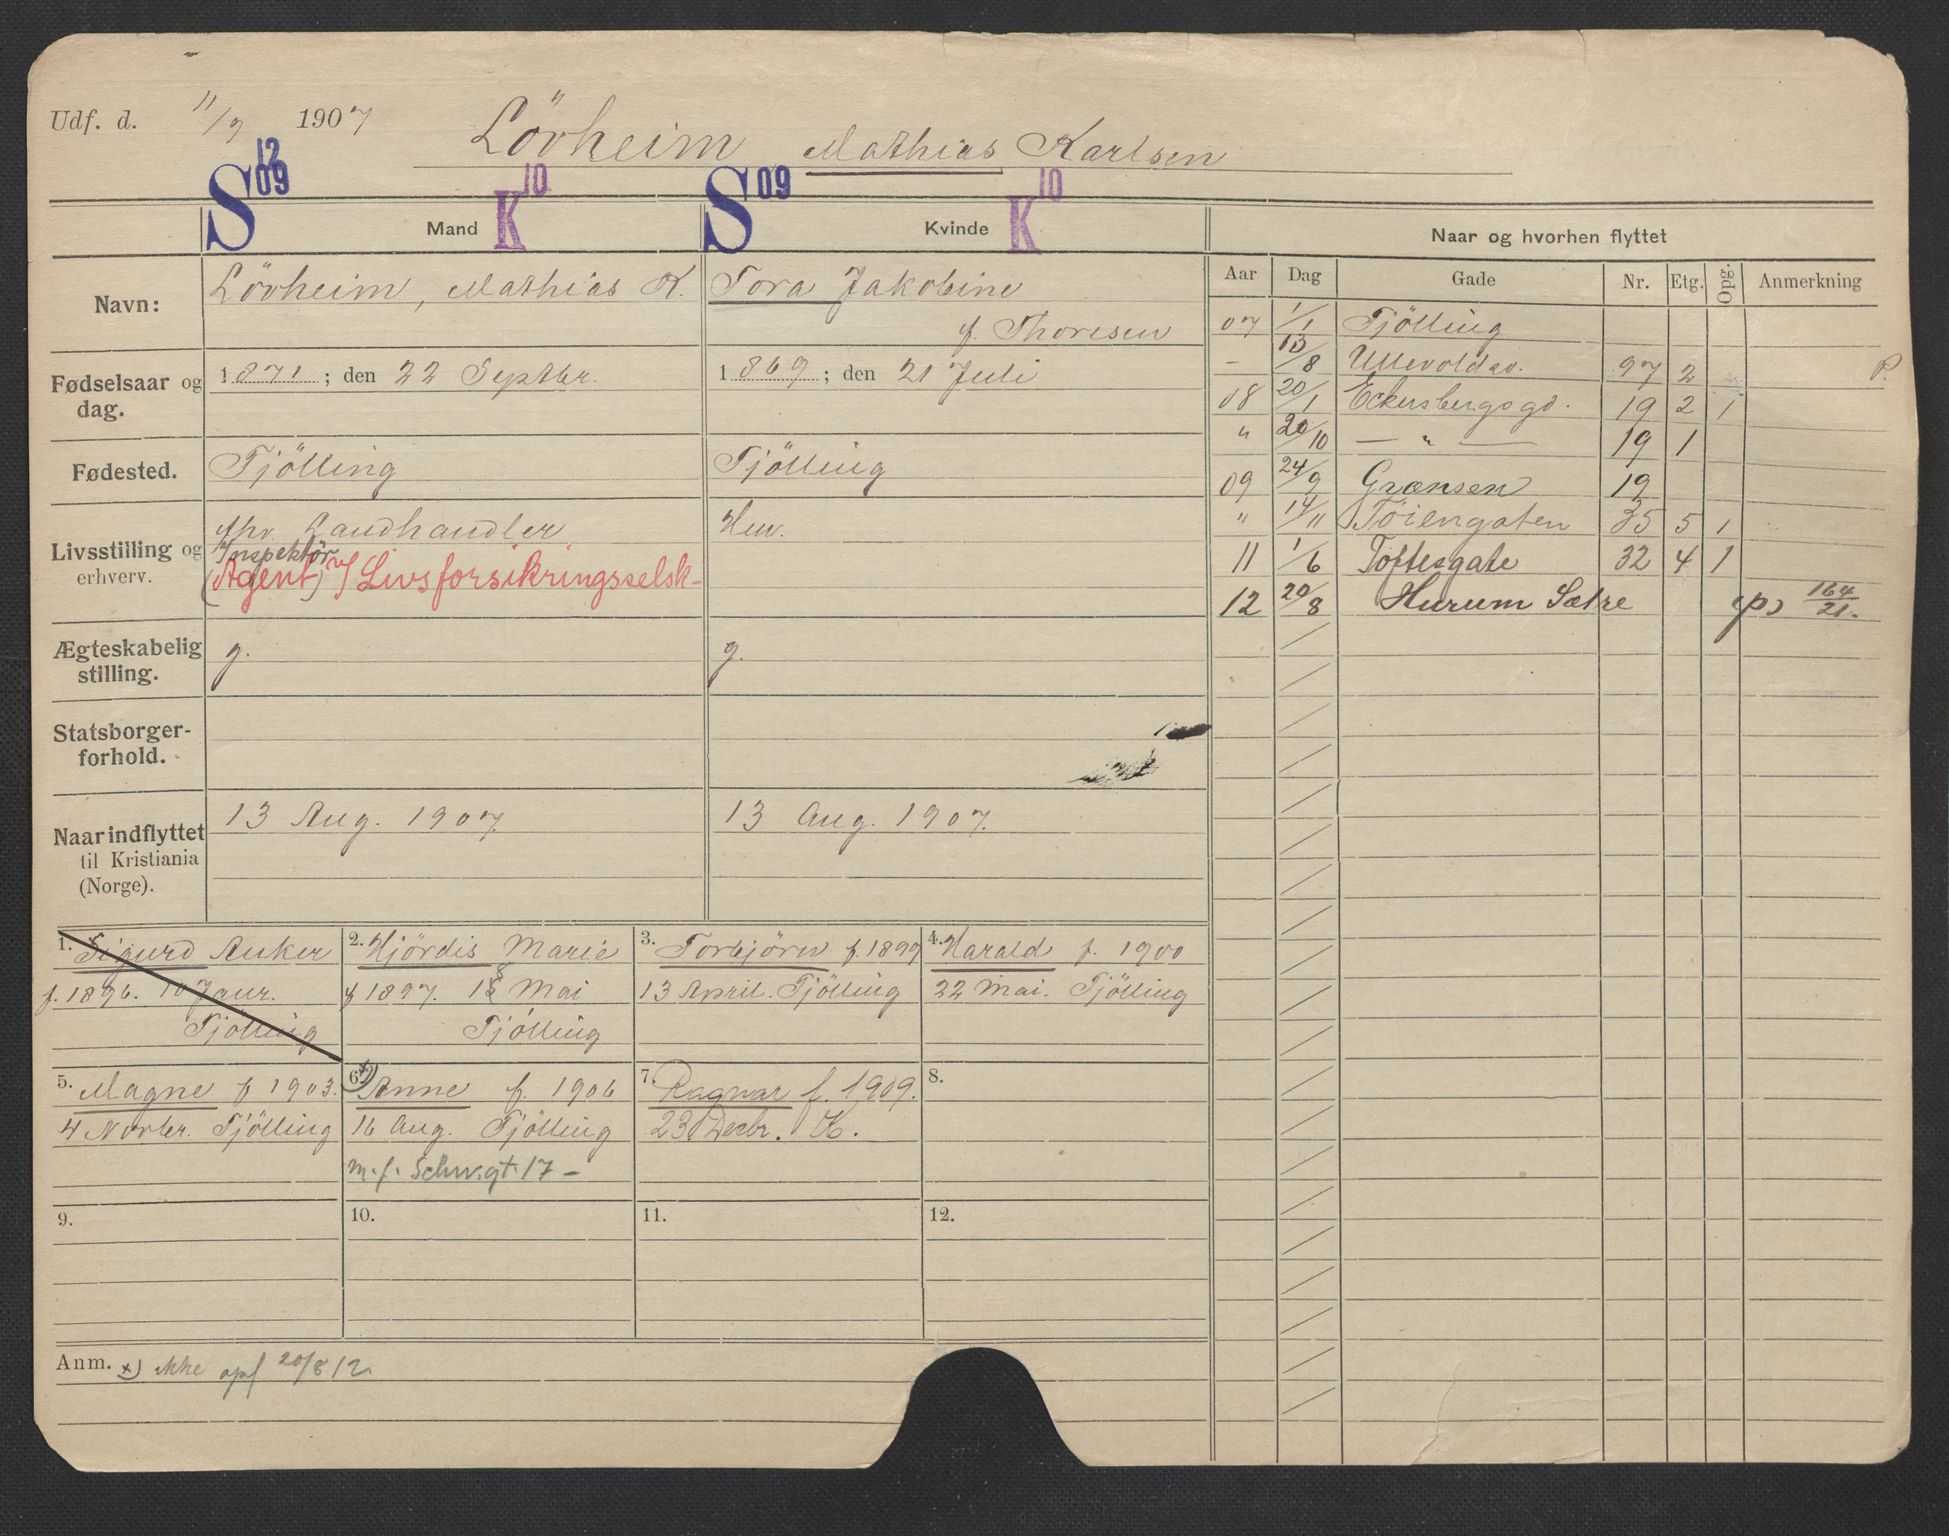 Udf. d. 11/9 1907 Lövheim Mathias Karlsen
S 12 09 K 10 S 09 K 10
Mand Kvinde Naar og hvorhen flyttet
Navn: Lövheim, Mathias K. Tora Jakobine
f. Thoresen
Fødselsaar og dag. 1871; den 22 Septbr. 1869; den 21 Juli
Fødested. Tjölling Tjölling
Livsstilling og erhverv. fhv. Landhandler Hus.
Inspektör
(Agent) v/ Livsforsikringsselsk-
Ægteskabelig stilling. g. g.
Statsborger-
forhold.
Naar indflyttet til Kristiania (Norge). 13 Aug. 1907. 13 Aug. 1907.
Aar Dag Gade Nr. Etg. Opg. Anmerkning
07 1/1 Tjölling
– 13/8 Ullevoldsv. 97 2 P.
08 20/1 Eckersbergsgd. 19 2 1
" 20/10 — " — 19 1
09 24/9 Grænsen 19
" 14/11 Töiengaten 35 5 1
11 1/6 Toftesgate 32 4 1
12 20/8 Hurum Sætre (p) 164/21.
1. Sigurd Anker
f. 1896. 10 Janr.
Tjölling
2. Hjördis Marie
f 1897. 18 Mai
Tjölling
3. Torbjörn f. 1899
13 April. Tjölling
4. Harald f. 1900
22 Mai. Tjölling
5. Magne f 1903.
4 Novbr. Tjölling
6. x) Anne f. 1906
16 Aug. Tjölling
m.f. Schw.gt. 17 –
7. Ragnar f. 1909.
23 Decbr. K.
8.
9.
10.
11.
12.
Anm. x) ikke opf 20/8 12.